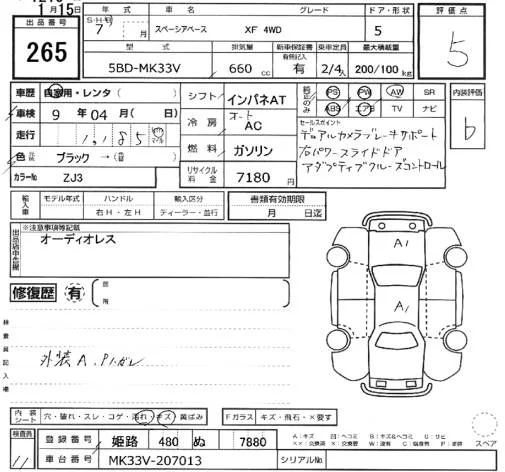 月15日
年式 車名 グレード ドア・形状 評価点
出品番号 S・H・R 7 月 スペーシアベース XF 4WD 5 5
265
型式 排気量 新車保証書 乗車定員 最大積載量
有無記入
5BD-MK33V 660 cc 有 2/4人 200/100 kg
車歴 自家用・レンタ( ) シフト インパネAT 純正のみ PS PW AW SR 内装評価
車検 9年04月( 日) ABS エアB TV ナビ b
冷房 オート AC セールスポイント
走行 デュアルカメラブレーキサポート
燃料 ガソリン 右パワースライドドア
色 元色 ブラック→( ) アダプティブクルーズコントロール
カラーNo ZJ3 リサイクル料金 7180円
輸入車 モデル年式 ハンドル 輸入区分 書類有効期限
右H・左H ディーラー・並行 月 日迄
※注意事項等記載
オーディオレス
A1
修復歴 有 箇所
A1
検査員記入欄
外装A、
内装シート 穴・破れ・スレ・コゲ・汚れ・キズ・黄ばみ Fガラス キズ・飛石・×要す スペア
検査員 登録番号 姫路 480 ぬ 7880
車台番号 MK33V-207013 シリアルNo.